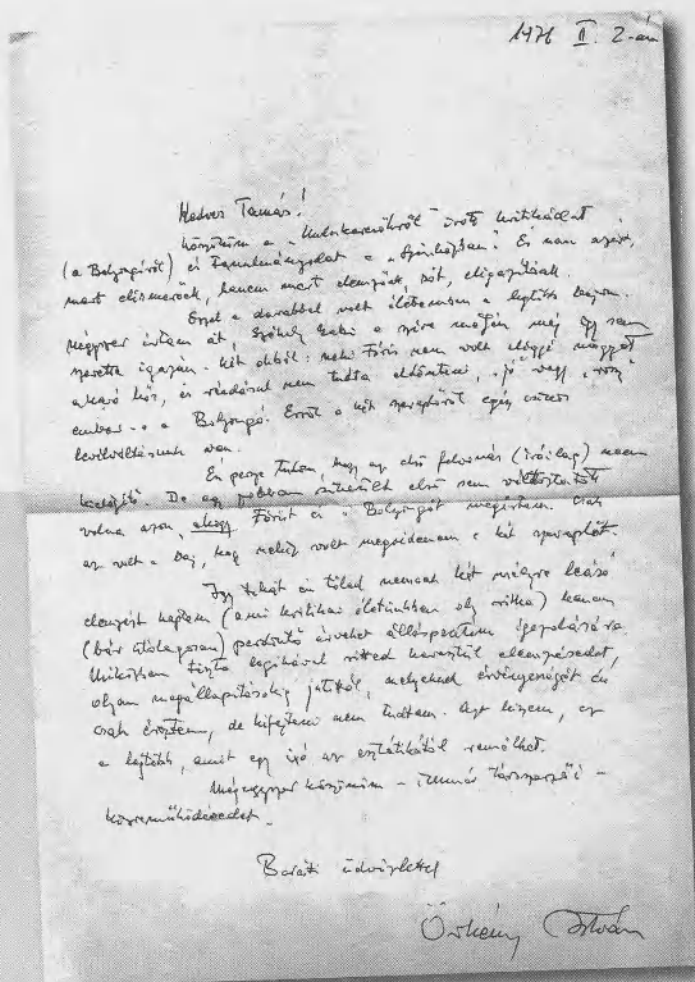 1976 II. 2-án
Kedves Tamás!
Köszönöm a „Kulcskeresőkről" írott kritikádat
(a Bolyongóról) és tanulmányodat a „Színházban". És nem azért,
mert elismerőek, hanem mert elemzőek, sőt, eligazítóak.
Ezzel a darabbal volt életemben a legtöbb bajom.
Négyszer írtam át, Székely Gabi a szíve mögén még így sem
szerette igazán. Két okból: neki Fóris nem volt eléggé
hős, és ráadásul nem tudta eldönteni, „jó" vagy „rossz"
ember-e a Bolyongó. Erről a két szereplőről egész
levélváltásunk van.
Én persze tudom, hogy az első felvonás (íróilag) nem
kielégítő. De egy jobban sikerült első sem változtatott
volna azon, ahogy Fórist és a Bolyongót megértem. Csak
az volt a baj, hogy nehéz volt megvédenem e két szereplőt.
Így tehát én tőled nemcsak két mélyre leásó
elemzést kaptam (ami kritikai életünkben oly ritka) hanem
(bár utólagosan) perdöntő érveket álláspontom igazolására.
Miközben tiszta logikával vitted keresztül elemzésedet,
olyan megállapításokig jutottál, melyeknek érvényességét én
csak éreztem, de kifejteni nem tudtam. Azt hiszem, ez
a legtöbb, amit egy író az esztétikától remélhet.
Mégegyszer köszönöm – immár társszerzői –
közreműködésedet.
Baráti üdvözlettel
Örkény István